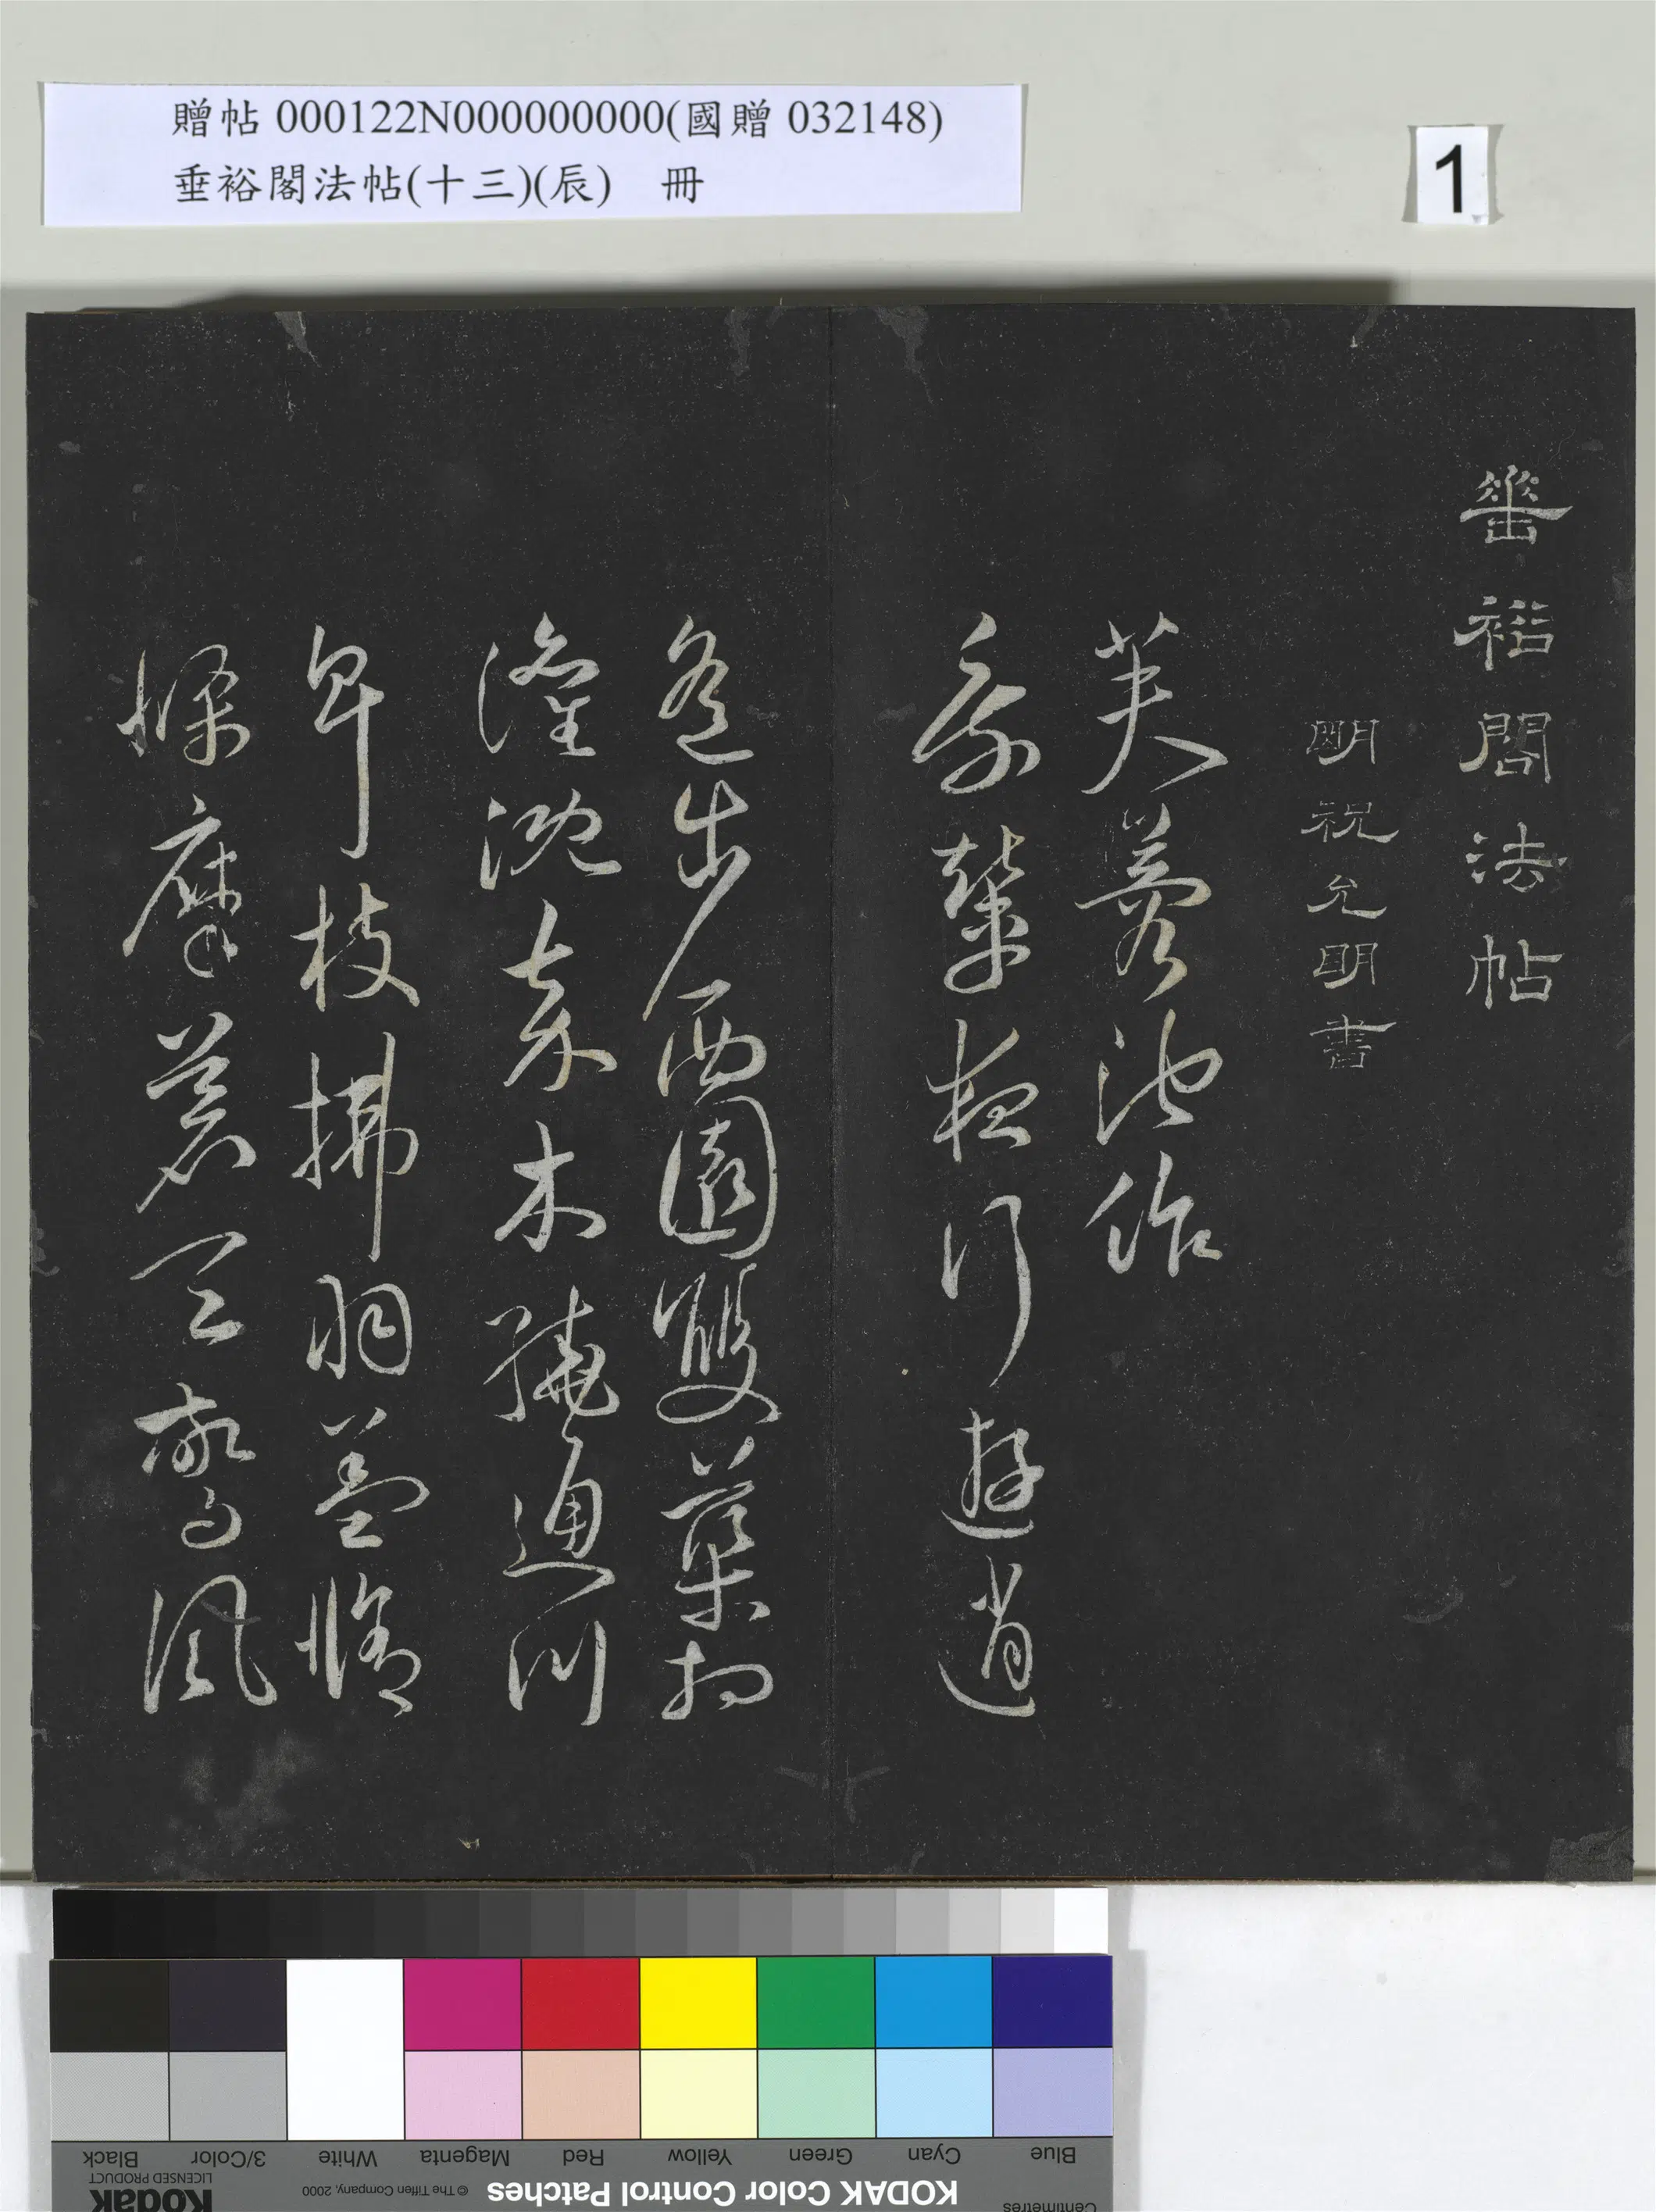 贈帖 000122N000000000(國贈 032148)
垂裕閣法帖(十三)(辰) 冊
1
垂裕閣法帖
明祝允明書
芙蓉池作
乘輦夜行遊逍
遙步西園雙渠相
溉灌嘉木繞通川
卑枝拂羽蓋脩
條摩蒼天驚風
Blue
Cyan
Green
Yellow
Red
Magenta
White
3/Color
Black
Centimetres
KODAK Color Control Patches
© The Tiffen Company, 2000
Kodak
LICENSED PRODUCT